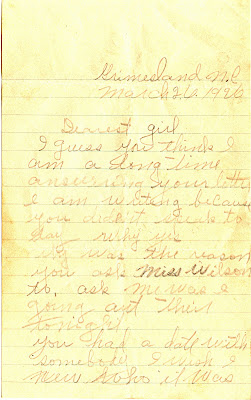 Grimesland N.C
March 26. 1926
Dearest girl
I guess you think I
am a long time
answering your letter
I am writing because
you didn't speak to
day why
was the reason
you ask Miss Wilson
to, ask me was I
going out their
tonight
you had a date with
somebody I wish I
new who it was